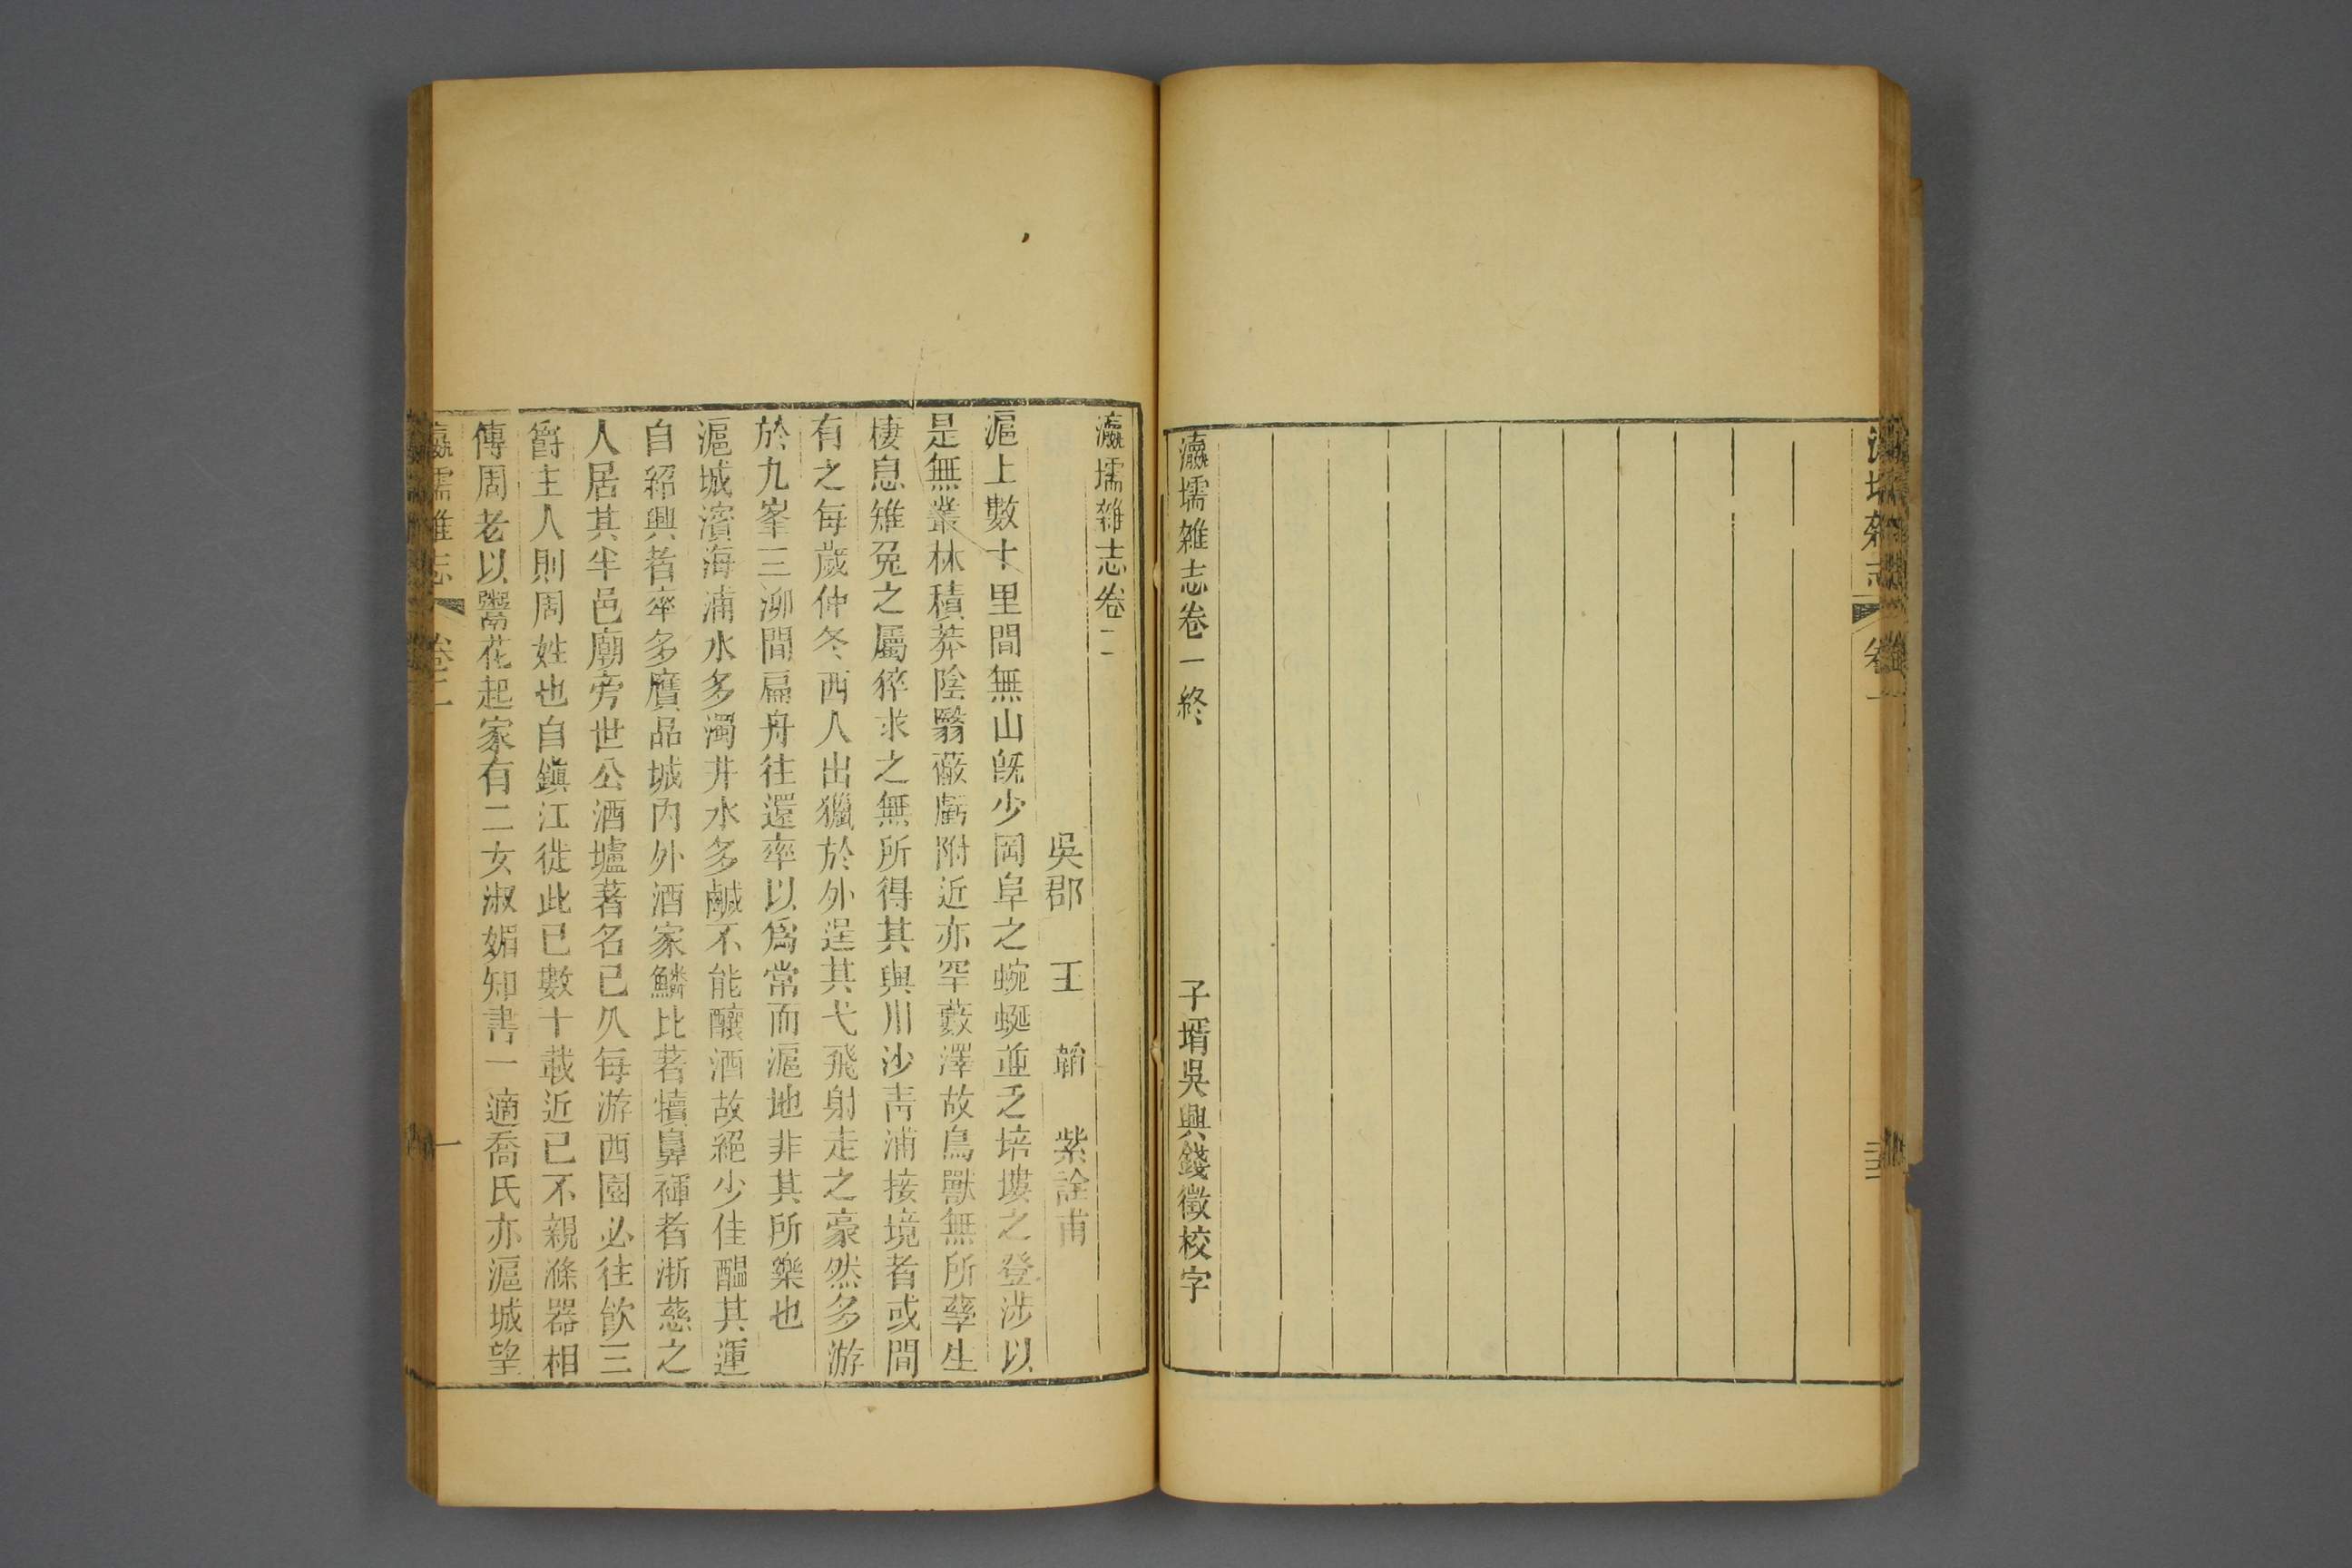 瀛壖雜志卷一終
子壻吳興錢徵校字
瀛壖雜志卷二
吳郡 王 韜 紫詮甫
滬上數十里間無山旣少岡阜之蜿蜒並乏培塿之登涉以
是無叢林積莽陰翳蔽虧附近亦罕藪澤故鳥獸無所孳生
棲息雉兔之屬猝求之無所得其與川沙靑浦接境者或間
有之每歲仲冬西人出獵於外逞其弋飛射走之豪然多游
於九峯三泖間扁舟往還率以爲常而滬地非其所樂也
滬城濱海浦水多濁井水多鹹不能釀酒故絕少佳醞其運
自紹興者率多贋品城內外酒家鱗比著犢鼻褌者浙慈之
人居其半邑廟旁世公酒壚著名已久每游西園必往飮三
爵主人則周姓也自鎭江徙此已數十載近已不親滌器相
傳周老以鬻花起家有二女淑媚知書一適喬氏亦滬城望
瀛壖雜志 卷二 一